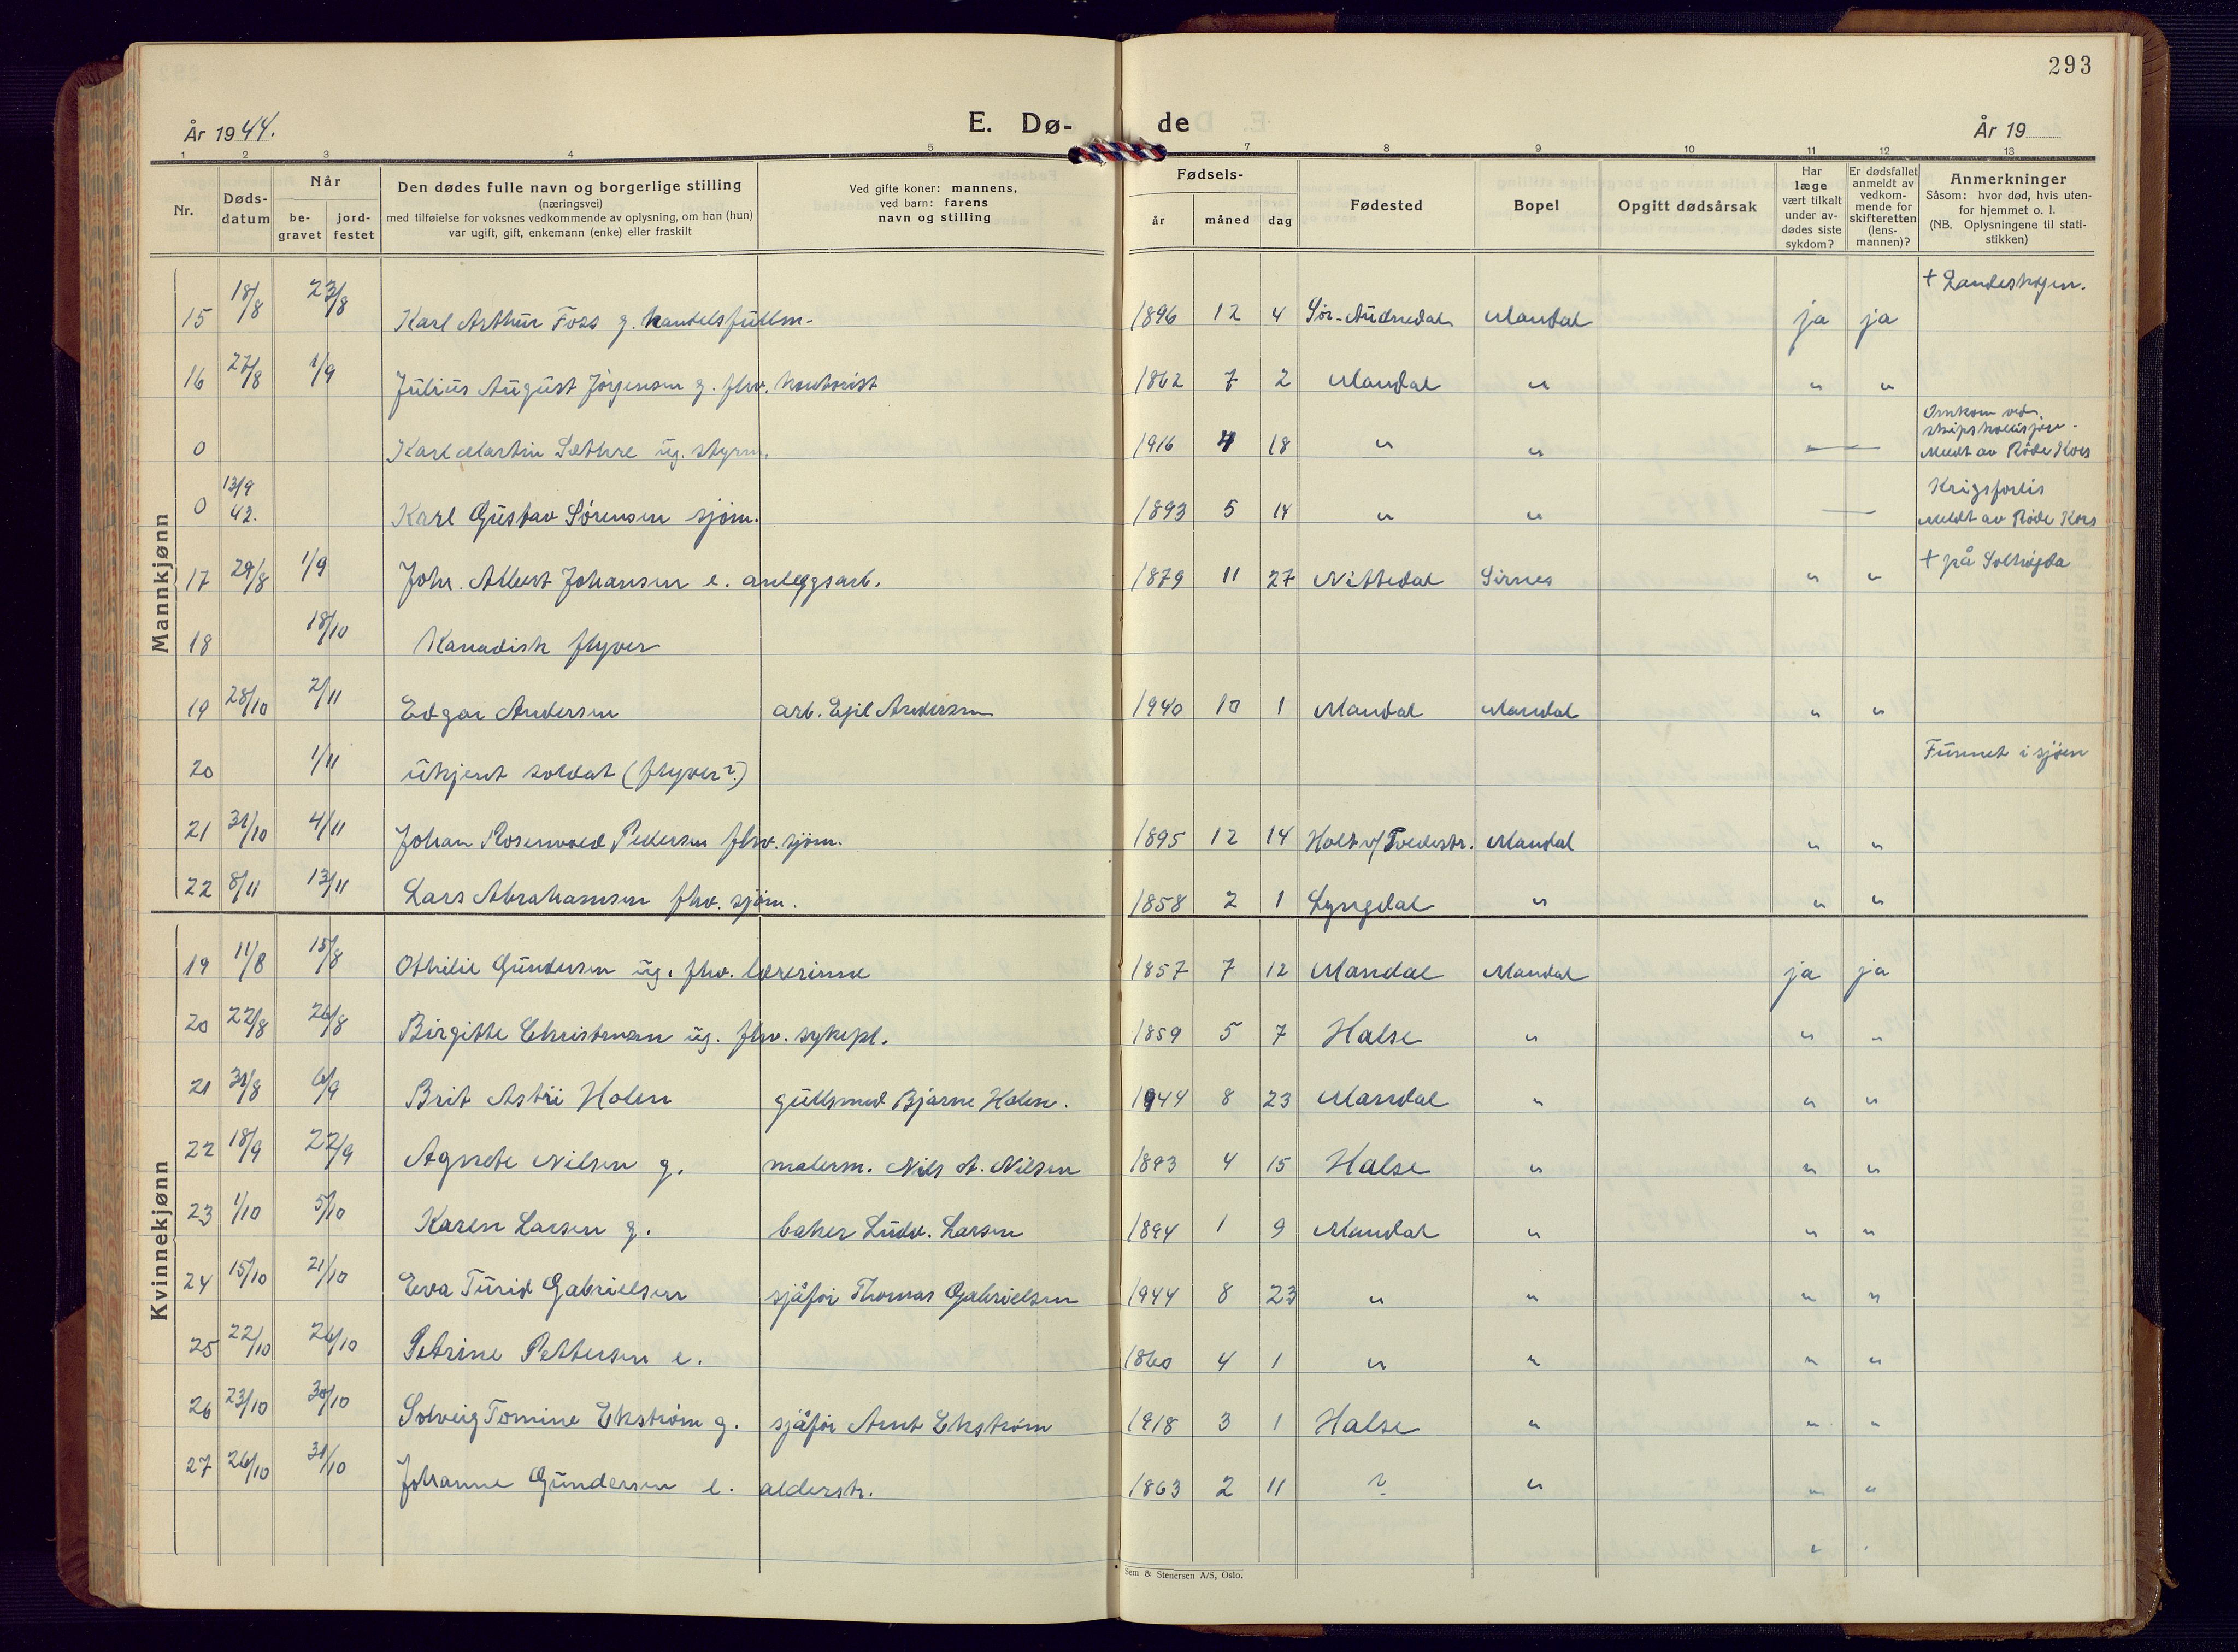 293
År 1944.
E. Dø- de
År 19
1 2 3 4 5 7 8 9 10 11 12 13
Nr.
Døds-
datum
Når
be-
gravet
jord-
festet
Den dødes fulle navn og borgerlige stilling
(næringsvei)
med tilføielse for voksnes vedkommende av oplysning, om han (hun)
var ugift, gift, enkemann (enke) eller fraskilt
Ved gifte koner: mannens,
ved barn: farens
navn og stilling
Fødsels-
år måned dag
Fødested
Bopel
Opgitt dødsårsak
Har
læge
vært tilkalt
under av-
dødes siste
sykdom?
Er dødsfallet
anmeldt av
vedkom-
mende for
skifteretten
(lens-
mannen)?
Anmerkninger
Såsom: hvor død, hvis uten-
for hjemmet o. l.
(NB. Oplysningene til stati-
stikken)
Mannkjønn
15 18/8 23/8 Karl Arthur Foss g. handelsfullm. 1896 12 4 Sør-Audnedal Mandal ja ja + Landeskogen.
16 27/8 1/9 Julius August Jørgensen g. fhv. kontorist 1862 7 2 Mandal " " "
0 Karl Martin Sæthre ug. styrm. 1916 4 18 " " — Omkom ved
skipskollisjon.
Meldt av Røde Kors
0 13/9 42. Karl Gustav Sørensen sjøm. 1893 5 14 " " — Krigsforlis
Meldt av Røde Kors
17 29/8 1/9 Johr. Albert Johansen e. anleggsarb. 1879 11 27 Nittedal Sirnes " " + på Solhøgda
18 18/10 Kanadisk flyver
19 28/10 2/11 Edgar Andersen arb. Egil Andersen 1940 10 1 Mandal Mandal " "
20 1/11 ukjent soldat (flyver?) Funnet i sjøen
21 31/10 4/11 Johan Rosenvold Pedersen fhv. sjøm. 1895 12 14 Holt v/ Tvedestr. Mandal " "
22 8/11 13/11 Lars Abrahamsen fhv. sjøm. 1858 2 1 Lyngdal " " "
Kvinnekjønn
19 11/8 15/8 Othilie Gundersen ug. fhv. lærerinne 1857 7 12 Mandal Mandal ja ja
20 22/8 26/8 Birgitte Christensen ug. fhv. sykepl. 1859 5 7 Halse " " "
21 31/8 6/9 Brit Astri Holen gullsmed Bjarne Holen. 1944 8 23 Mandal " " "
22 18/9 22/9 Agnete Nilsen g. malerm. Nils A. Nilsen 1893 4 15 Halse " " "
23 1/10 5/10 Karen Larsen g. baker Ludv. Larsen 1894 1 9 Mandal " " "
24 15/10 21/10 Eva Turid Gabrielsen sjåfør Thomas Gabrielsen 1944 8 23 " " " "
25 22/10 26/10 Petrine Pettersen e. 1860 4 1 " " " "
26 23/10 30/10 Solveig Tomine Ekstrøm g. sjåfør Arnt Ekstrøm 1918 3 1 Halse " " "
27 26/10 31/10 Johanne Gundersen e. alderstr. 1863 2 11 ? " " "
"
Sem & Stenersen A/S, Oslo.